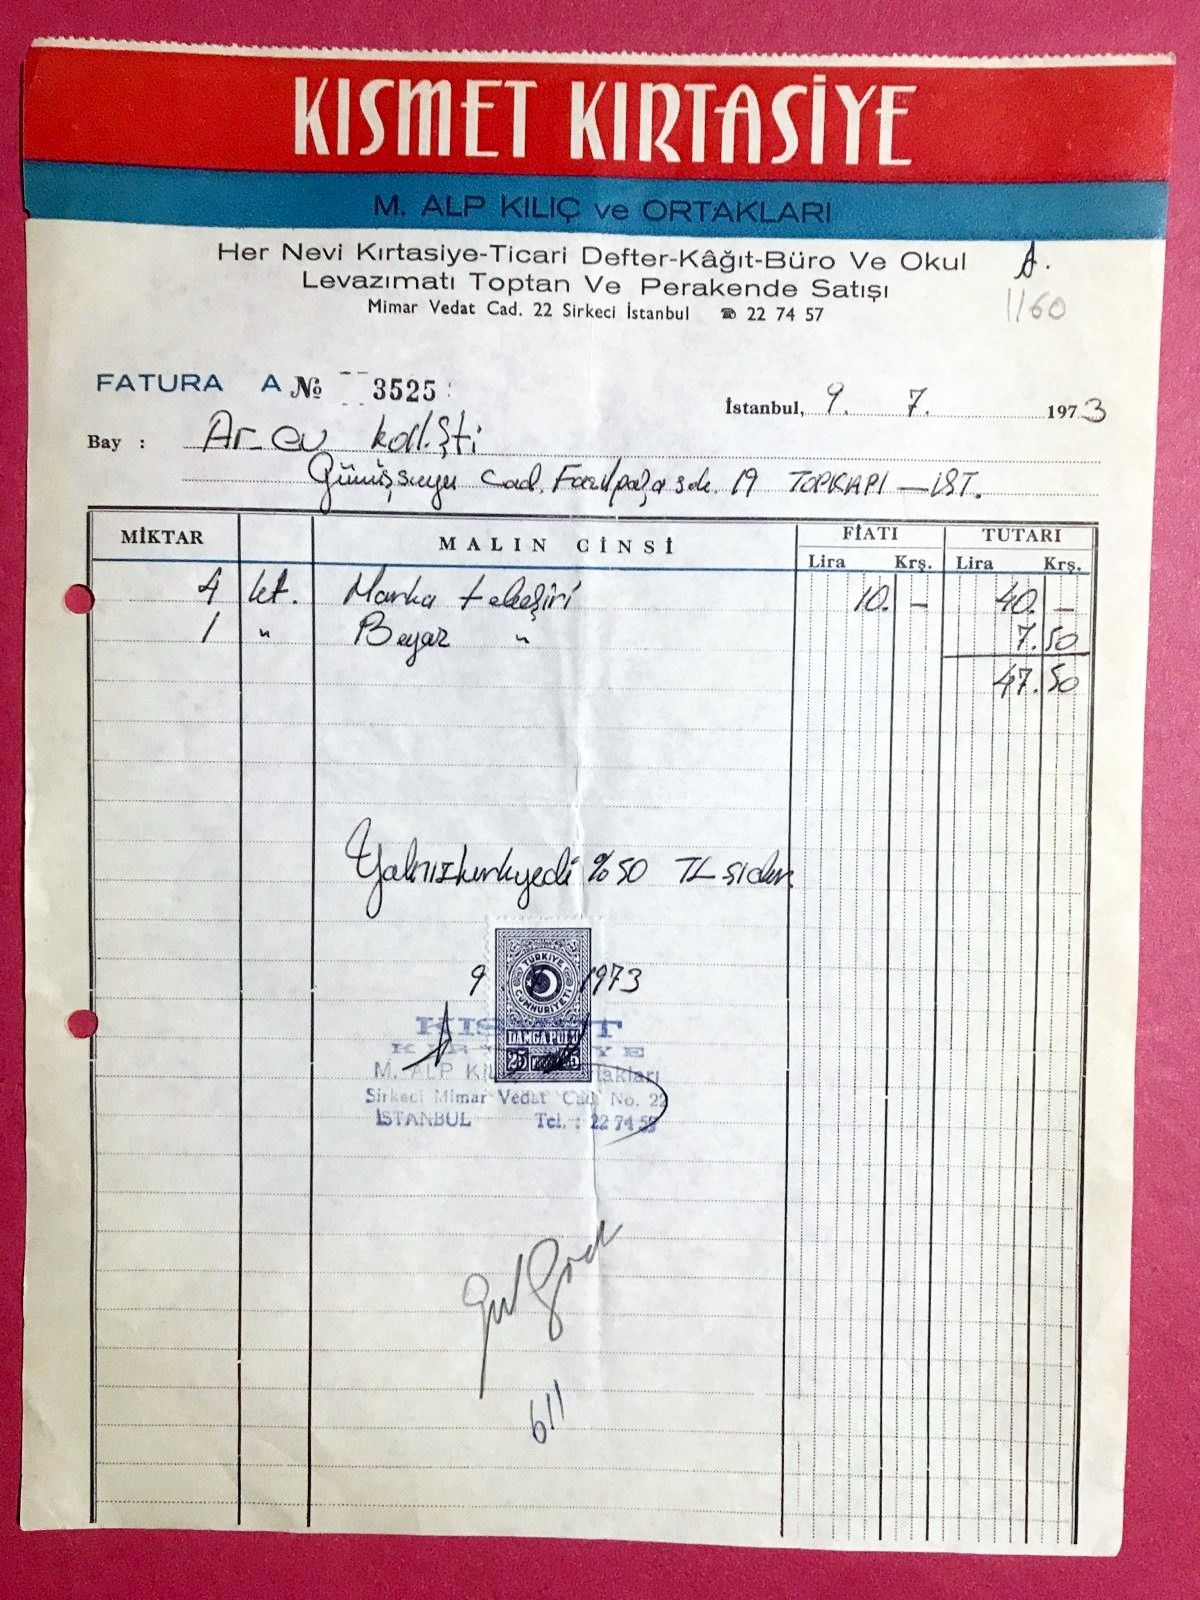 KISMET KIRTASİYE
M. ALP KILIÇ ve ORTAKLARI
Her Nevi Kırtasiye-Ticari Defter-Kâğıt-Büro Ve Okul
Levazımatı Toptan Ve Perakende Satışı
Mimar Vedat Cad. 22 Sirkeci İstanbul ☎ 22 74 57
A.
1160
FATURA A № 3525
İstanbul, 9. 7. 1973
Bay : Ar-ev koll.Şti
Gümüşsuyu Cad. Fazılpaşa sok. 19 TOPKAPI — İST.
MİKTAR MALIN CİNSİ FİATI TUTARI
Lira Krş. Lira Krş.
4 kt. Marka tebeşiri 10. - 40. -
1 " Beyaz " 7.50
47.50
Yalnızkırkyedi %50 TL sıdır.
TÜRKİYE CUMHURİYETİ
9 1973
DAMGA PULU
25 25
KISMET
KIRTASİYE
M. ALP KILIÇ ve Ortakları
Sirkeci Mimar Vedat Cad. No. 22
İSTANBUL Tel. : 22 74 57
611